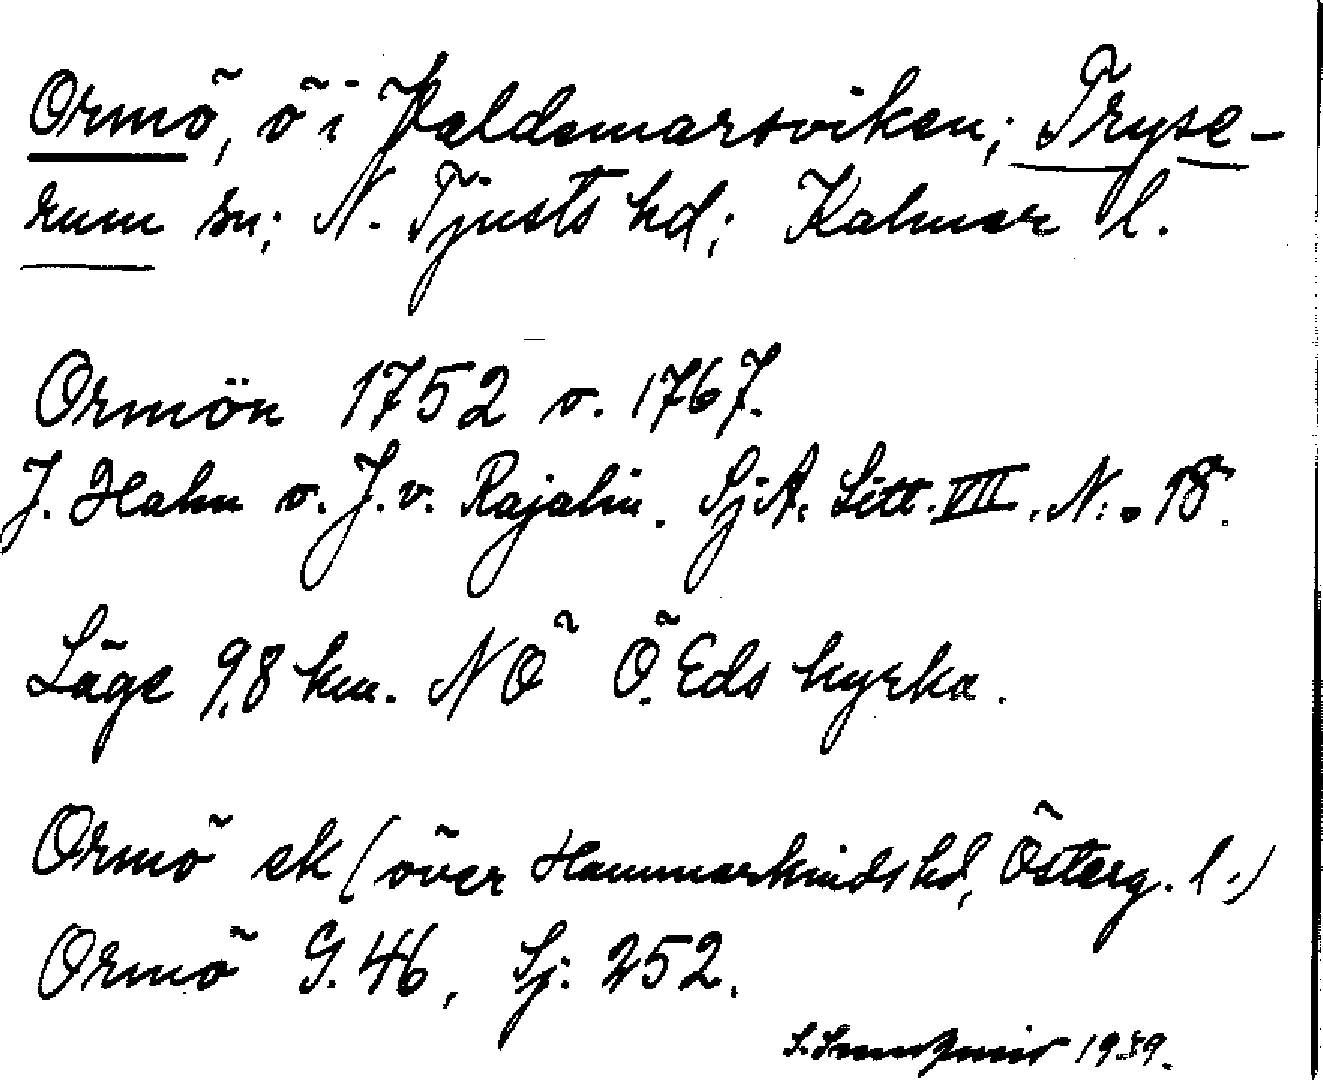 Ormö, ö i Valdemarsviken; Tryse-
rum sn; N. Tjusts hd; Kalmar l.
Ormön 1752 o. 1767.
J. Hahn o. J. v. Rajalin. SjA. Litt. VII. N:o 18.
Läge 9,8 km. NÖ Ö. Eds kyrka.
Ormö ek (över Hammarkinds hd, Österg. l.)
Ormö G. 46, Sj. 252.
1939.